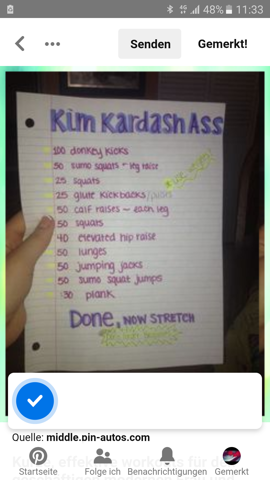 48% 11:33
Senden Gemerkt!
Kim KardashAss
100 donkey kicks
50 sumo squats - leg raise
25 squats
25 glute kickbacks/pulses
50 calf raises ~ each leg
50 squats
40 elevated hip raise
50 lunges
50 jumping jacks
50 sumo squat jumps
:30 plank
Done, NOW STRETCH
Quelle: middle.pin-autos.com
Startseite Folge ich Benachrichtigungen Gemerkt